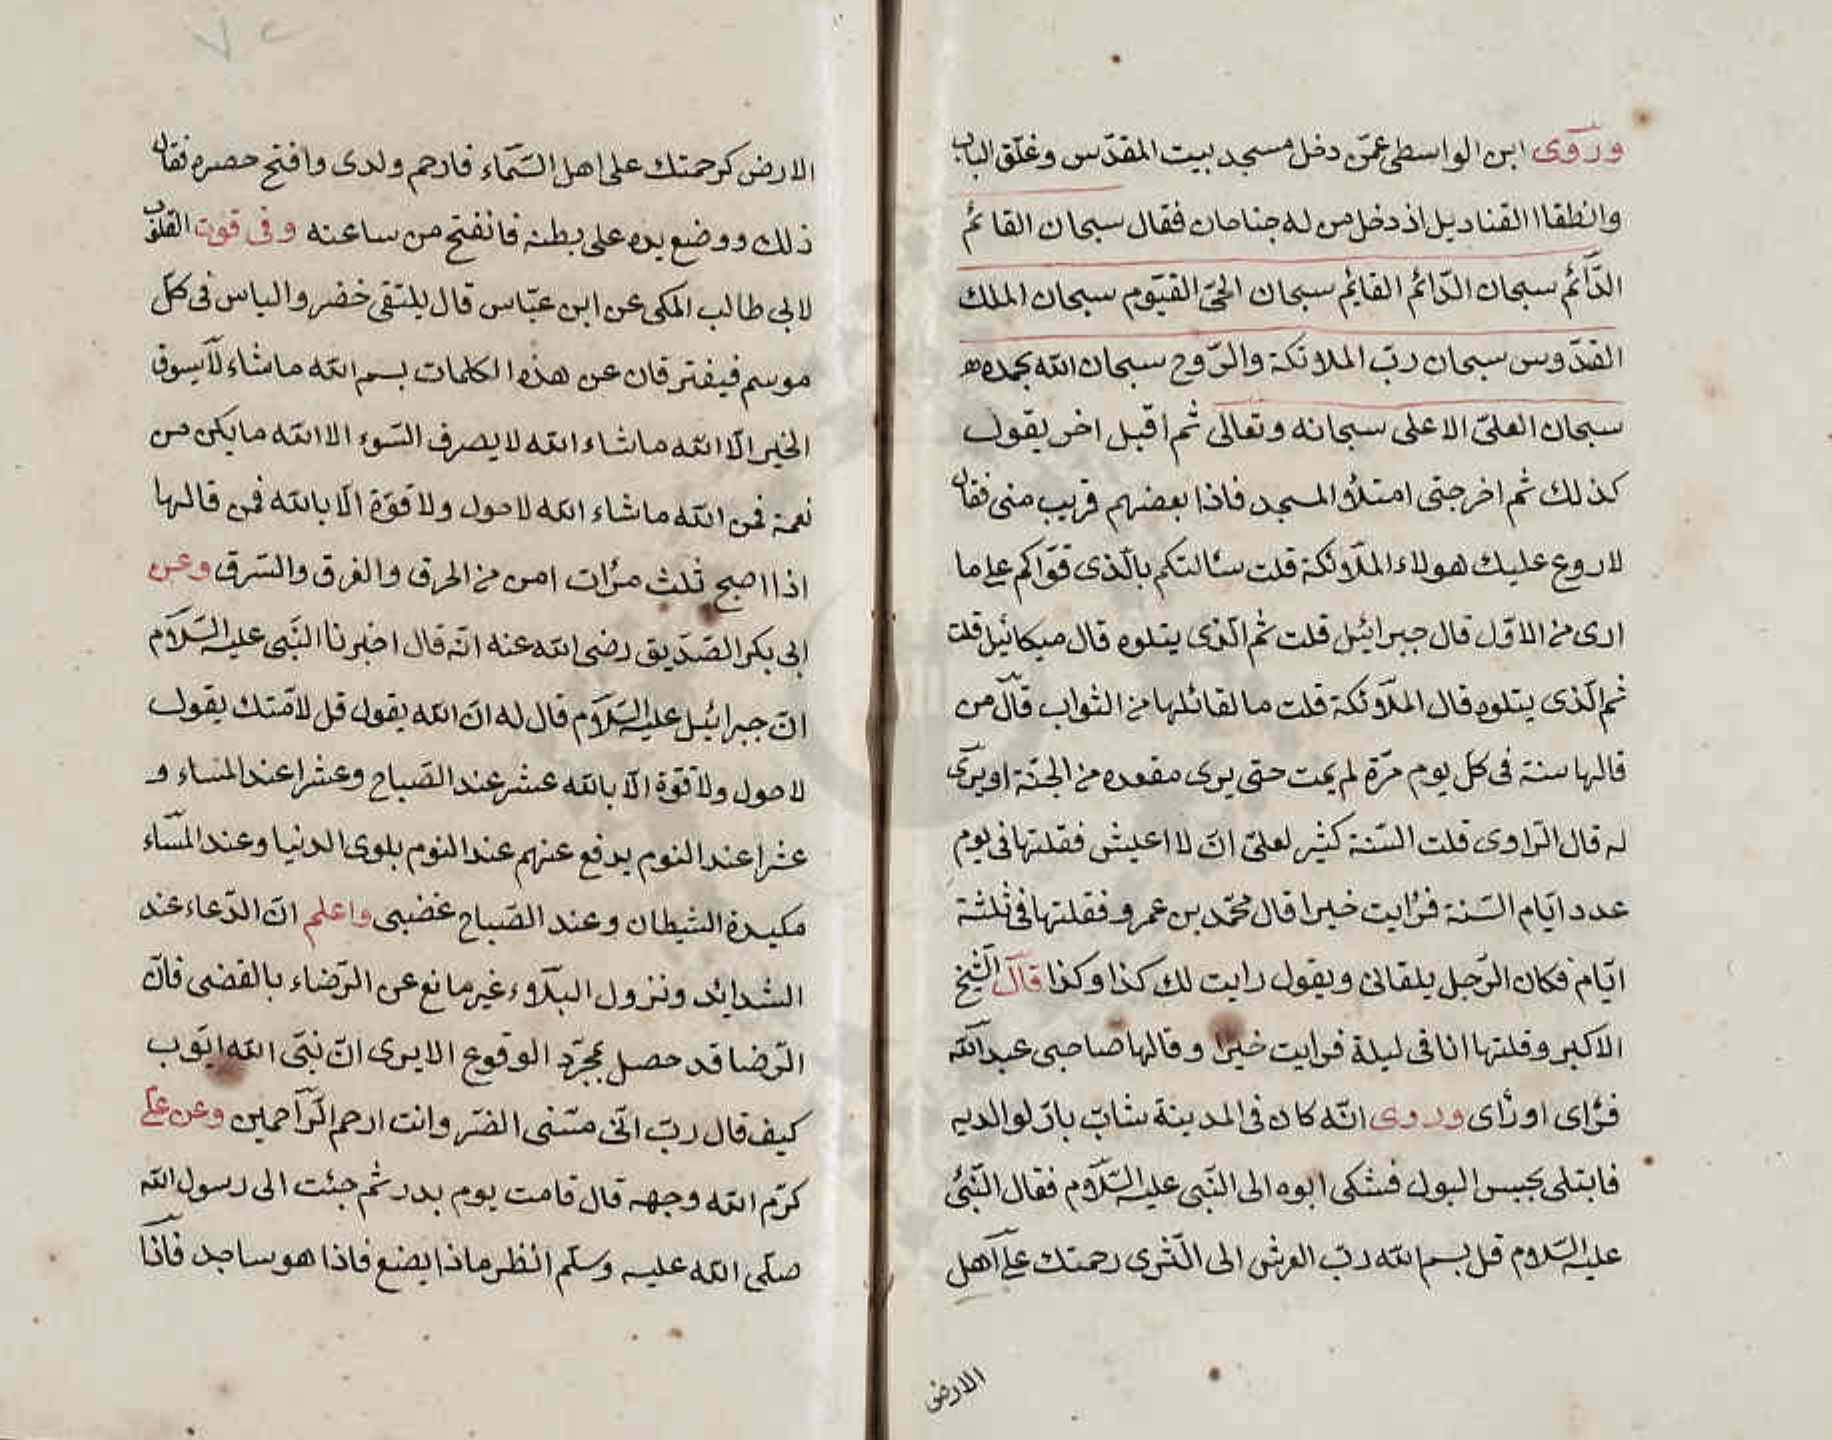 وروى ابن الواسطى عمّن دخل مسجد بيت المقدّس وغلّق الباب
وانطفاا القناديل اذ دخل من له جناحان فقال سبحان القائم
الدّآئم سبحان الدّائم القايم سبحان الحىّ القيّوم سبحان الملك
القدّوس سبحان ربّ الملائكة والرّوح سبحان الله بحمده
سبحان العلىّ الاعلى سبحانه وتعالى ثم اقبل اخر يقول
كذلك ثم اخر حتى امتلاؤ المسجد فاذا بعضهم قريب منى فقال
لا روع عليك هولاء الملآئكة قلت سئالتكم بالّذى قوّاكم على ما
ارى من الاوّل قال جبرائيل قلت ثم الّذى يتلوه قال ميكائيل قلت
ثم الّذى يتلوه قال الملآئكة قلت ما لقائلها من الثواب قال من
قالها سنة فى كل يوم مرّة لم يمت حتى يرى مقعده من الجنّة او يرى
له قال الرّاوى قلت السّنة كثير لعلىّ ان لا اعيش فقلتها فى يوم
عدد ايّام السّنة فرايت خيرا قال محمّد بن عمرو فقلتها فى ثلثة
ايّام فكان الرّجل يلقانى ويقول رايت لك كذا وكذا قال الشّيخ
الاكبر وقلتها انا فى ليلة فرايت خيرا وقالها صاحبى عبد الله
فرأى او رأى وروى انّه كان فى المدينة شابّ بارّ لوالديه
فابتلى بحبس البول فشكى ابوه الى النّبى عليه السّلام فقال النّبىّ
عليه السّلام قل بسم الله ربّ العرش الى الثّرى رحمتك على اهل
الارض
الارض كرحمتك على اهل السّمآء فارحم ولدى وافتح حصره فقال
ذلك ووضع يده على بطنه فانفتح من ساعته وفى قوت القلوب
لابى طالب المكى عن ابن عبّاس قال يلتقى خضر والياس فى كلّ
موسم فيفترقان عن هذه الكلمات بسم الله ماشاء لا يسوق
الخير الّا الله ماشاء الله لا يصرف السّوء الا الله ما يكن من
نعمة فمن الله ماشاء الله لاحول ولا قوّة الّا بالله فمن قالها
اذا اصبح ثلث مرّات امن من الحرق والغرق والسّرق وعن
ابى بكر الصّدّيق رضى الله عنه انّه قال اخبرنا النّبى عليه السّلام
انّ جبرائيل عليه السّلام قال له ان الله يقول قل لامّتك يقول
لاحول ولا قوّة الّا بالله عشر عند الصّباح وعشرا عند المساء و
عشرا عند النوم يدفع عنهم عند النوم بلوى الدنيا وعند المسّاء
مكيدة الشّيطان وعند الصّباح غضبى واعلم انّ الدّعاء عند
الشدايد ونزول البلآء غير مانع عن الرّضاء بالقضى فانّ
الرّضا قد حصل بمجرّد الوقوع الا يرى انّ نبىّ الله ايّوب
كيف قال ربّ انّى مسّنى الضّر وانت ارحم الرّاحمين وعن على
كرّم الله وجهه قال قامت يوم بدر ثم جئت الى رسول الله
صلّى الله عليه وسلّم انظر ماذا يضع فاذا هو ساجد فاذا